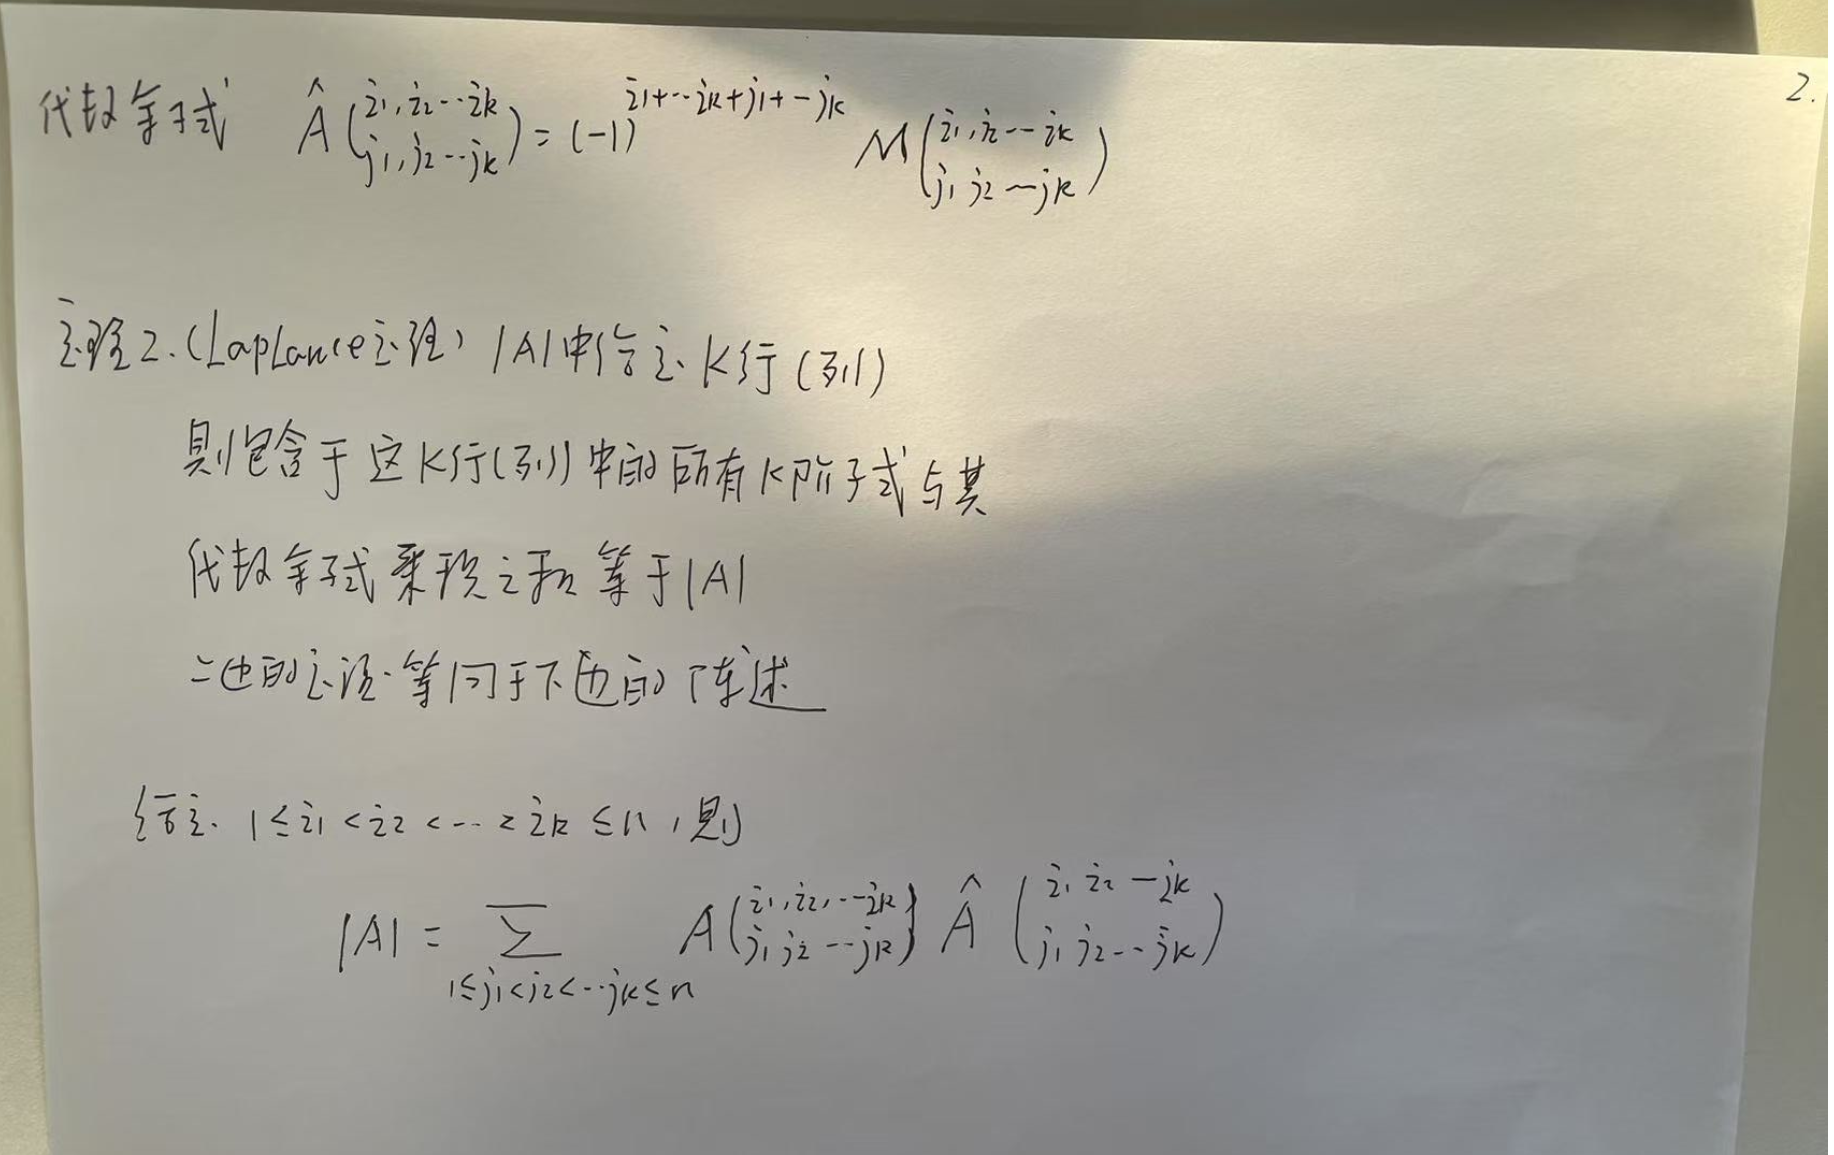 2.
代数余子式 Â(i1,i2…ik / j1,j2…jk) = (-1)^(i1+…ik+j1+…jk) M(i1,i2…ik / j1 j2…jk)
定理2.(Laplance定理) |A|中给定K行(列)
则包含于这K行(列)中的所有K阶子式与其
代数余子式乘积之和等于|A|
上边的定理等同于下边的陈述
给定 1≤i1<i2<…<ik≤n,则
|A| = Σ A(i1,i2,…ik / j1 j2…jk) Â(i1 i2…ik / j1 j2…jk)
1≤j1<j2<…jk≤n